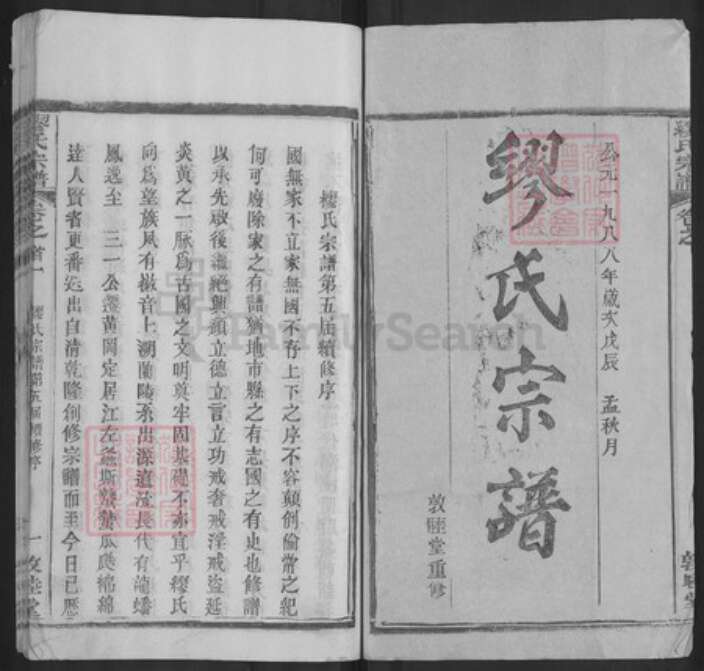 公元一九八八年歲次戊辰 孟秋月
繆氏宗譜
敦睦堂重修
繆氏宗譜
卷之
繆氏宗譜第五届續修序
國無家不立家無國不存上下之序不容顛倒倫常之紀
何可廢除家之有譜猶地市縣之有志國之有史也修譜
以承先啟後繼絕興顏立德立言立功戒奢戒淫戒盜延
炎黃之一脉爲古國之文明奠牢固基礎不亦宜乎繆氏
向爲望族夙有徽音上溯蘭陵系出源遠流長代有龍蟠
鳳逸至 三一公遷黃岡定居江左螽斯蟄蟄瓜瓞綿綿
達人賢者更番迭出自清乾隆創修宗譜而至今日已歷
繆氏宗譜
卷之首
繆氏宗譜第五届續修序
一
敦睦堂
FamilySearch